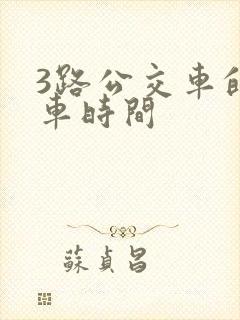 3路公交車
車時間
蘇貞昌